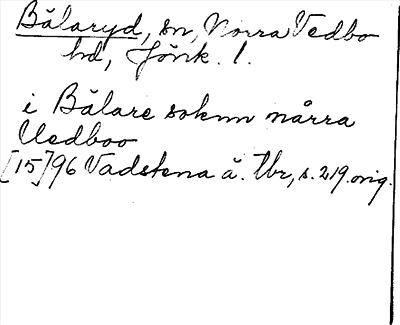 Bälaryd, sn, Norra Vedbo
hd, Jönk. l.
i Bälare soknn nårra
Uedboo
[15]96 Vadstena ä. tbr, s. 219 orig.